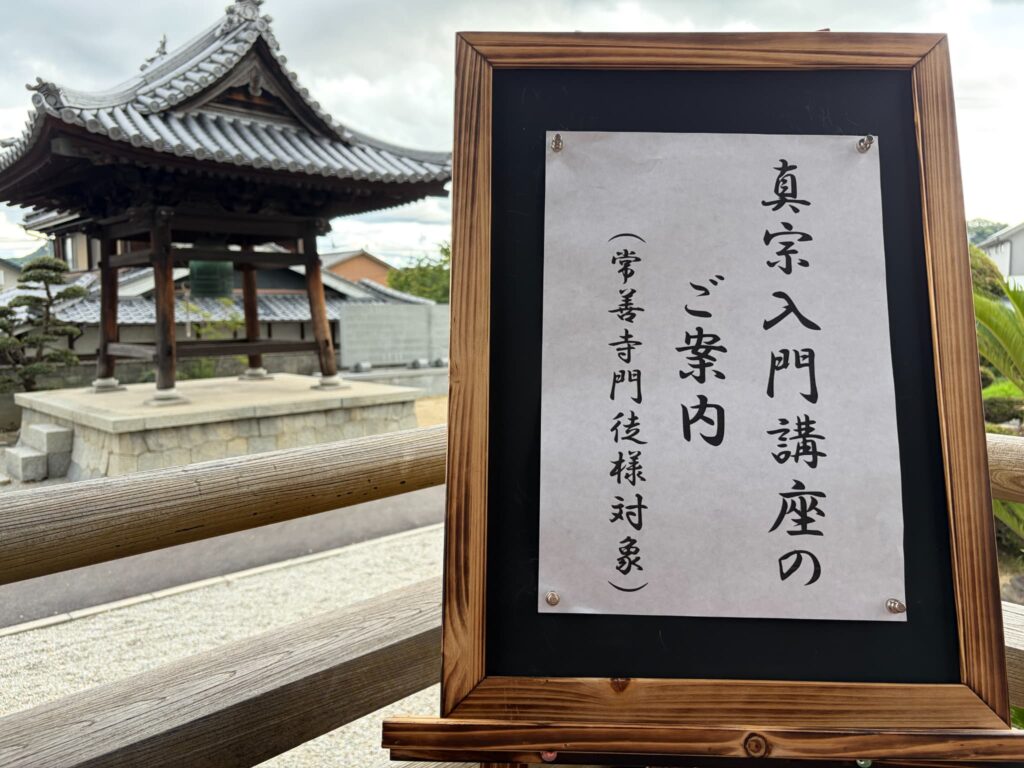 真宗入門講座の
ご案内
（常善寺門徒様対象）